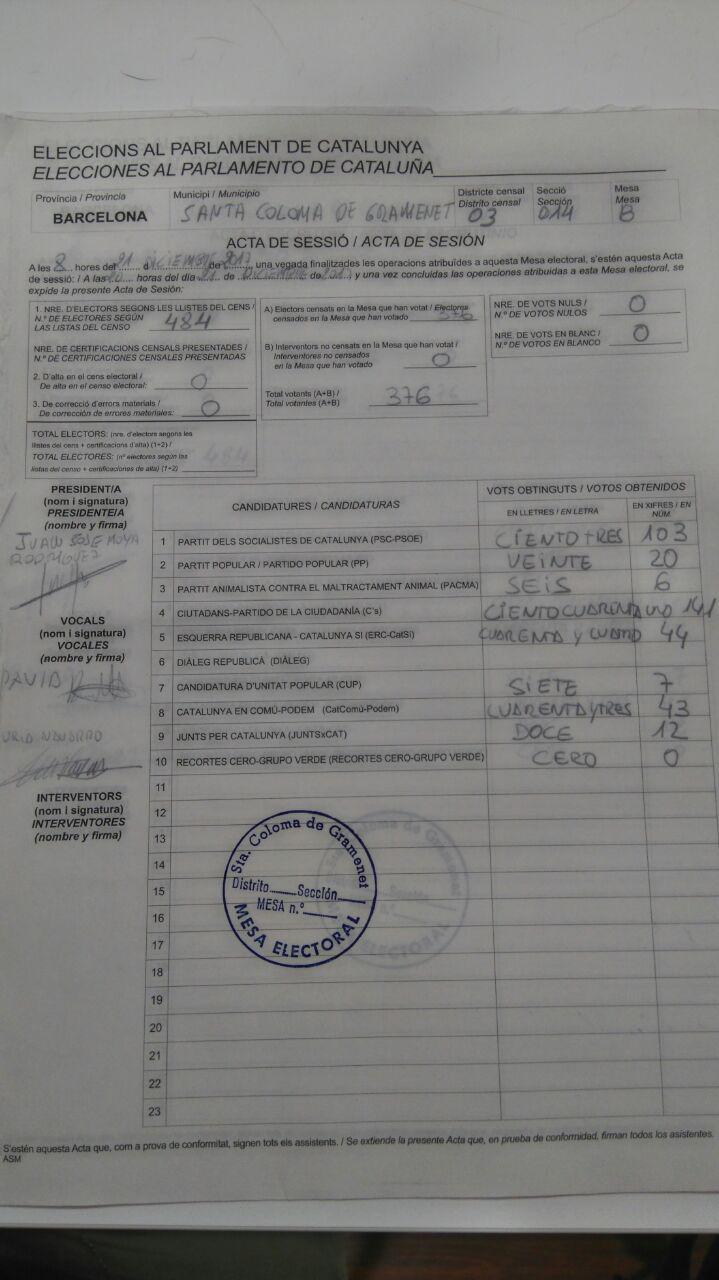 ELECCIONS AL PARLAMENT DE CATALUNYA
ELECCIONES AL PARLAMENTO DE CATALUÑA
Província / Provincia
BARCELONA
Municipi / Municipio
SANTA COLOMA DE GRAMENET
Districte censal
Distrito censal
03
Secció
Sección
014
Mesa
Mesa
B
ACTA DE SESSIÓ / ACTA DE SESIÓN
A les 8 hores del 21 d DICIEMBRE de 2017, una vegada finalitzdes les operacions atribuïdes a aquesta Mesa electoral, s'estén aquesta Acta
de sessió: / A las 20 horas del día 21 de DICIEMBRE de 2017 y una vez concluidas las operaciones atribuidas a esta Mesa electoral, se
expide la presente Acta de Sesión:
1. NRE. D'ELECTORS SEGONS LES LLISTES DEL CENS /
N.º DE ELECTORES SEGÚN
LAS LISTAS DEL CENSO
484
NRE. DE CERTIFICACIONS CENSALS PRESENTADES /
N.º DE CERTIFICACIONES CENSALES PRESENTADAS
2. D'alta en el cens electoral /
De alta en el censo electoral: 0
3. De correcció d'errors materials /
De corrección de errores materiales: 0
TOTAL ELECTORS: (nre. d'electors segons les
llistes del cens + certificacions d'alta) (1+2) /
TOTAL ELECTORES: (nº electores según las
listas del censo + certificaciones de alta) (1+2) 484
A) Electors censats en la Mesa que han votat / Electores
censados en la Mesa que han votado 376
B) Interventors no censats en la Mesa que han votat /
Interventores no censados
en la Mesa que han votado 0
Total votants (A+B) /
Total votantes (A+B) 376
NRE. DE VOTS NULS /
N.º DE VOTOS NULOS 0
NRE. DE VOTS EN BLANC /
N.º DE VOTOS EN BLANCO 0
PRESIDENT/A
(nom i signatura)
PRESIDENTE/A
(nombre y firma)
JUAN JOSE MOYA
RODRIGUEZ
VOCALS
(nom i signatura)
VOCALES
(nombre y firma)
DAVID
NAVARRO
INTERVENTORS
(nom i signatura)
INTERVENTORES
(nombre y firma)
CANDIDATURES / CANDIDATURAS
VOTS OBTINGUTS / VOTOS OBTENIDOS
EN LLETRES / EN LETRA
EN XIFRES / EN
NÚM.
1 PARTIT DELS SOCIALISTES DE CATALUNYA (PSC-PSOE) CIENTO TRES 103
2 PARTIT POPULAR / PARTIDO POPULAR (PP) VEINTE 20
3 PARTIT ANIMALISTA CONTRA EL MALTRACTAMENT ANIMAL (PACMA) SEIS 6
4 CIUTADANS-PARTIDO DE LA CIUDADANÍA (C's) CIENTO CUARENTA UNO 141
5 ESQUERRA REPUBLICANA - CATALUNYA SI (ERC-CatSí) CUARENTA Y CUATRO 44
6 DIÀLEG REPUBLICÀ (DIÀLEG)
7 CANDIDATURA D'UNITAT POPULAR (CUP) SIETE 7
8 CATALUNYA EN COMÚ-PODEM (CatComú-Podem) CUARENTA Y TRES 43
9 JUNTS PER CATALUNYA (JUNTSxCAT) DOCE 12
10 RECORTES CERO-GRUPO VERDE (RECORTES CERO-GRUPO VERDE) CERO 0
11
12
13
14
15
16
17
18
19
20
21
22
23
Sta. Coloma de Gramenet
Distrito Sección
MESA n.º
MESA ELECTORAL
S'estén aquesta Acta que, com a prova de conformitat, signen tots els assistents. / Se extiende la presente Acta que, en prueba de conformidad, firman todos los asistentes.
ASM